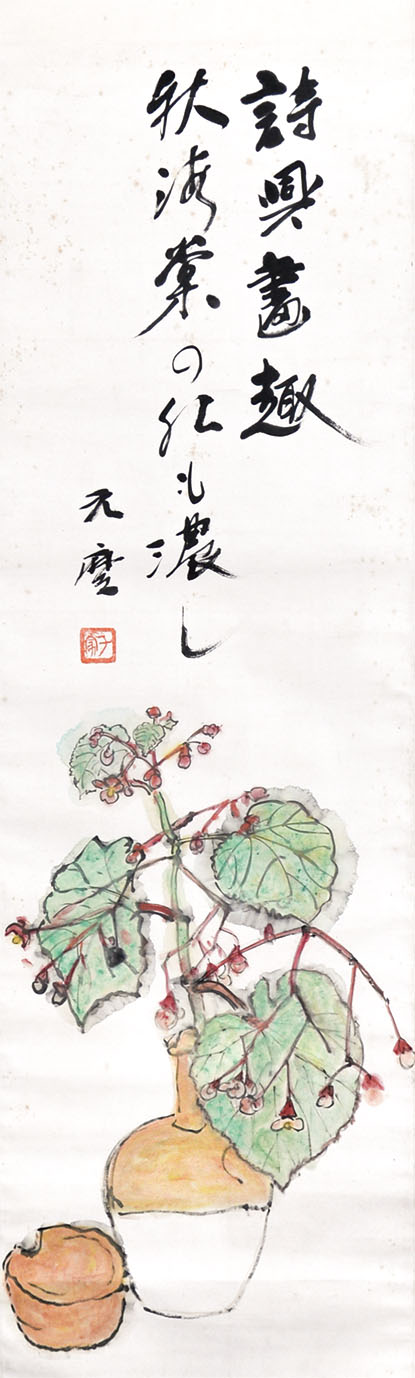 詩興畫趣
秋海棠の紅も濃し
元麿
千家